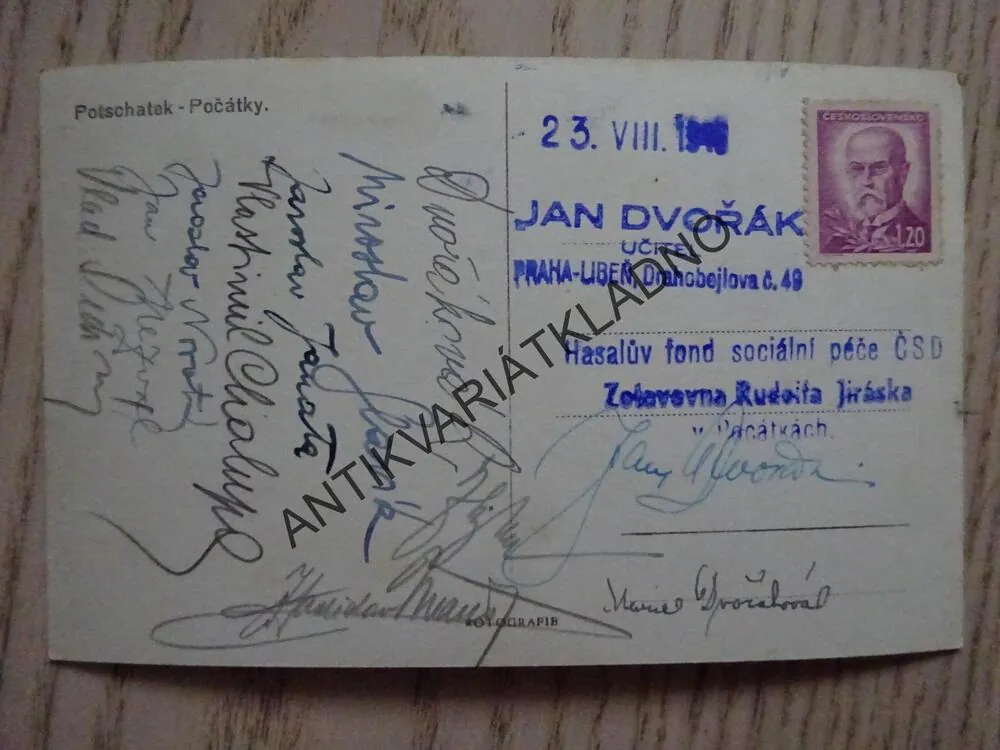 Potschatek - Počátky.
23. VIII.
ČESKOSLOVENSKO
1.20
JAN DVOŘÁK
UČITEL
PRAHA-LIBEŇ, Drahobejlova č. 49
Hasalův fond sociální péče ČSD
Zotavovna Rudolfa Jiráska
v Počátkách.
Dvořáková
Miroslav
Jaroslav Janata
Vlastimil Chalupa
Jaroslav
Jan
Vlad
Stanislav
Marie Dvořáková
FOTOGRAFIE
ANTIKVARIÁTKLADNO